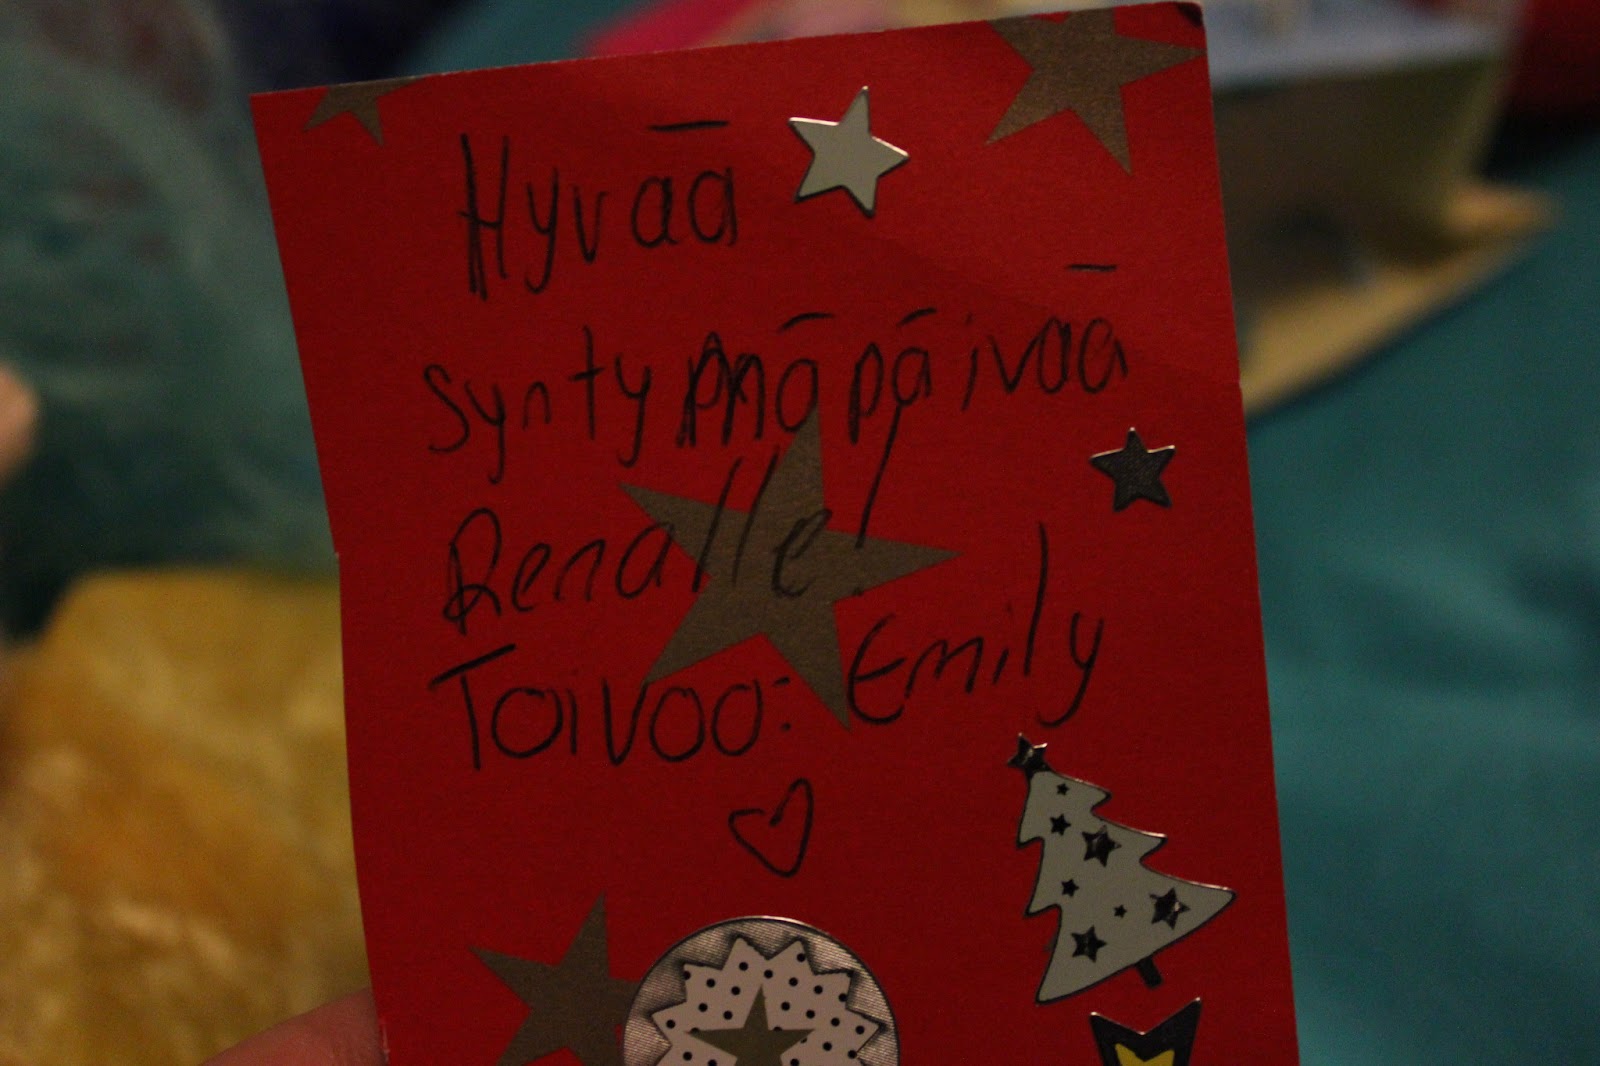 Hyvää
syntymäpäivää
Renalle!
Toivoo: Emily